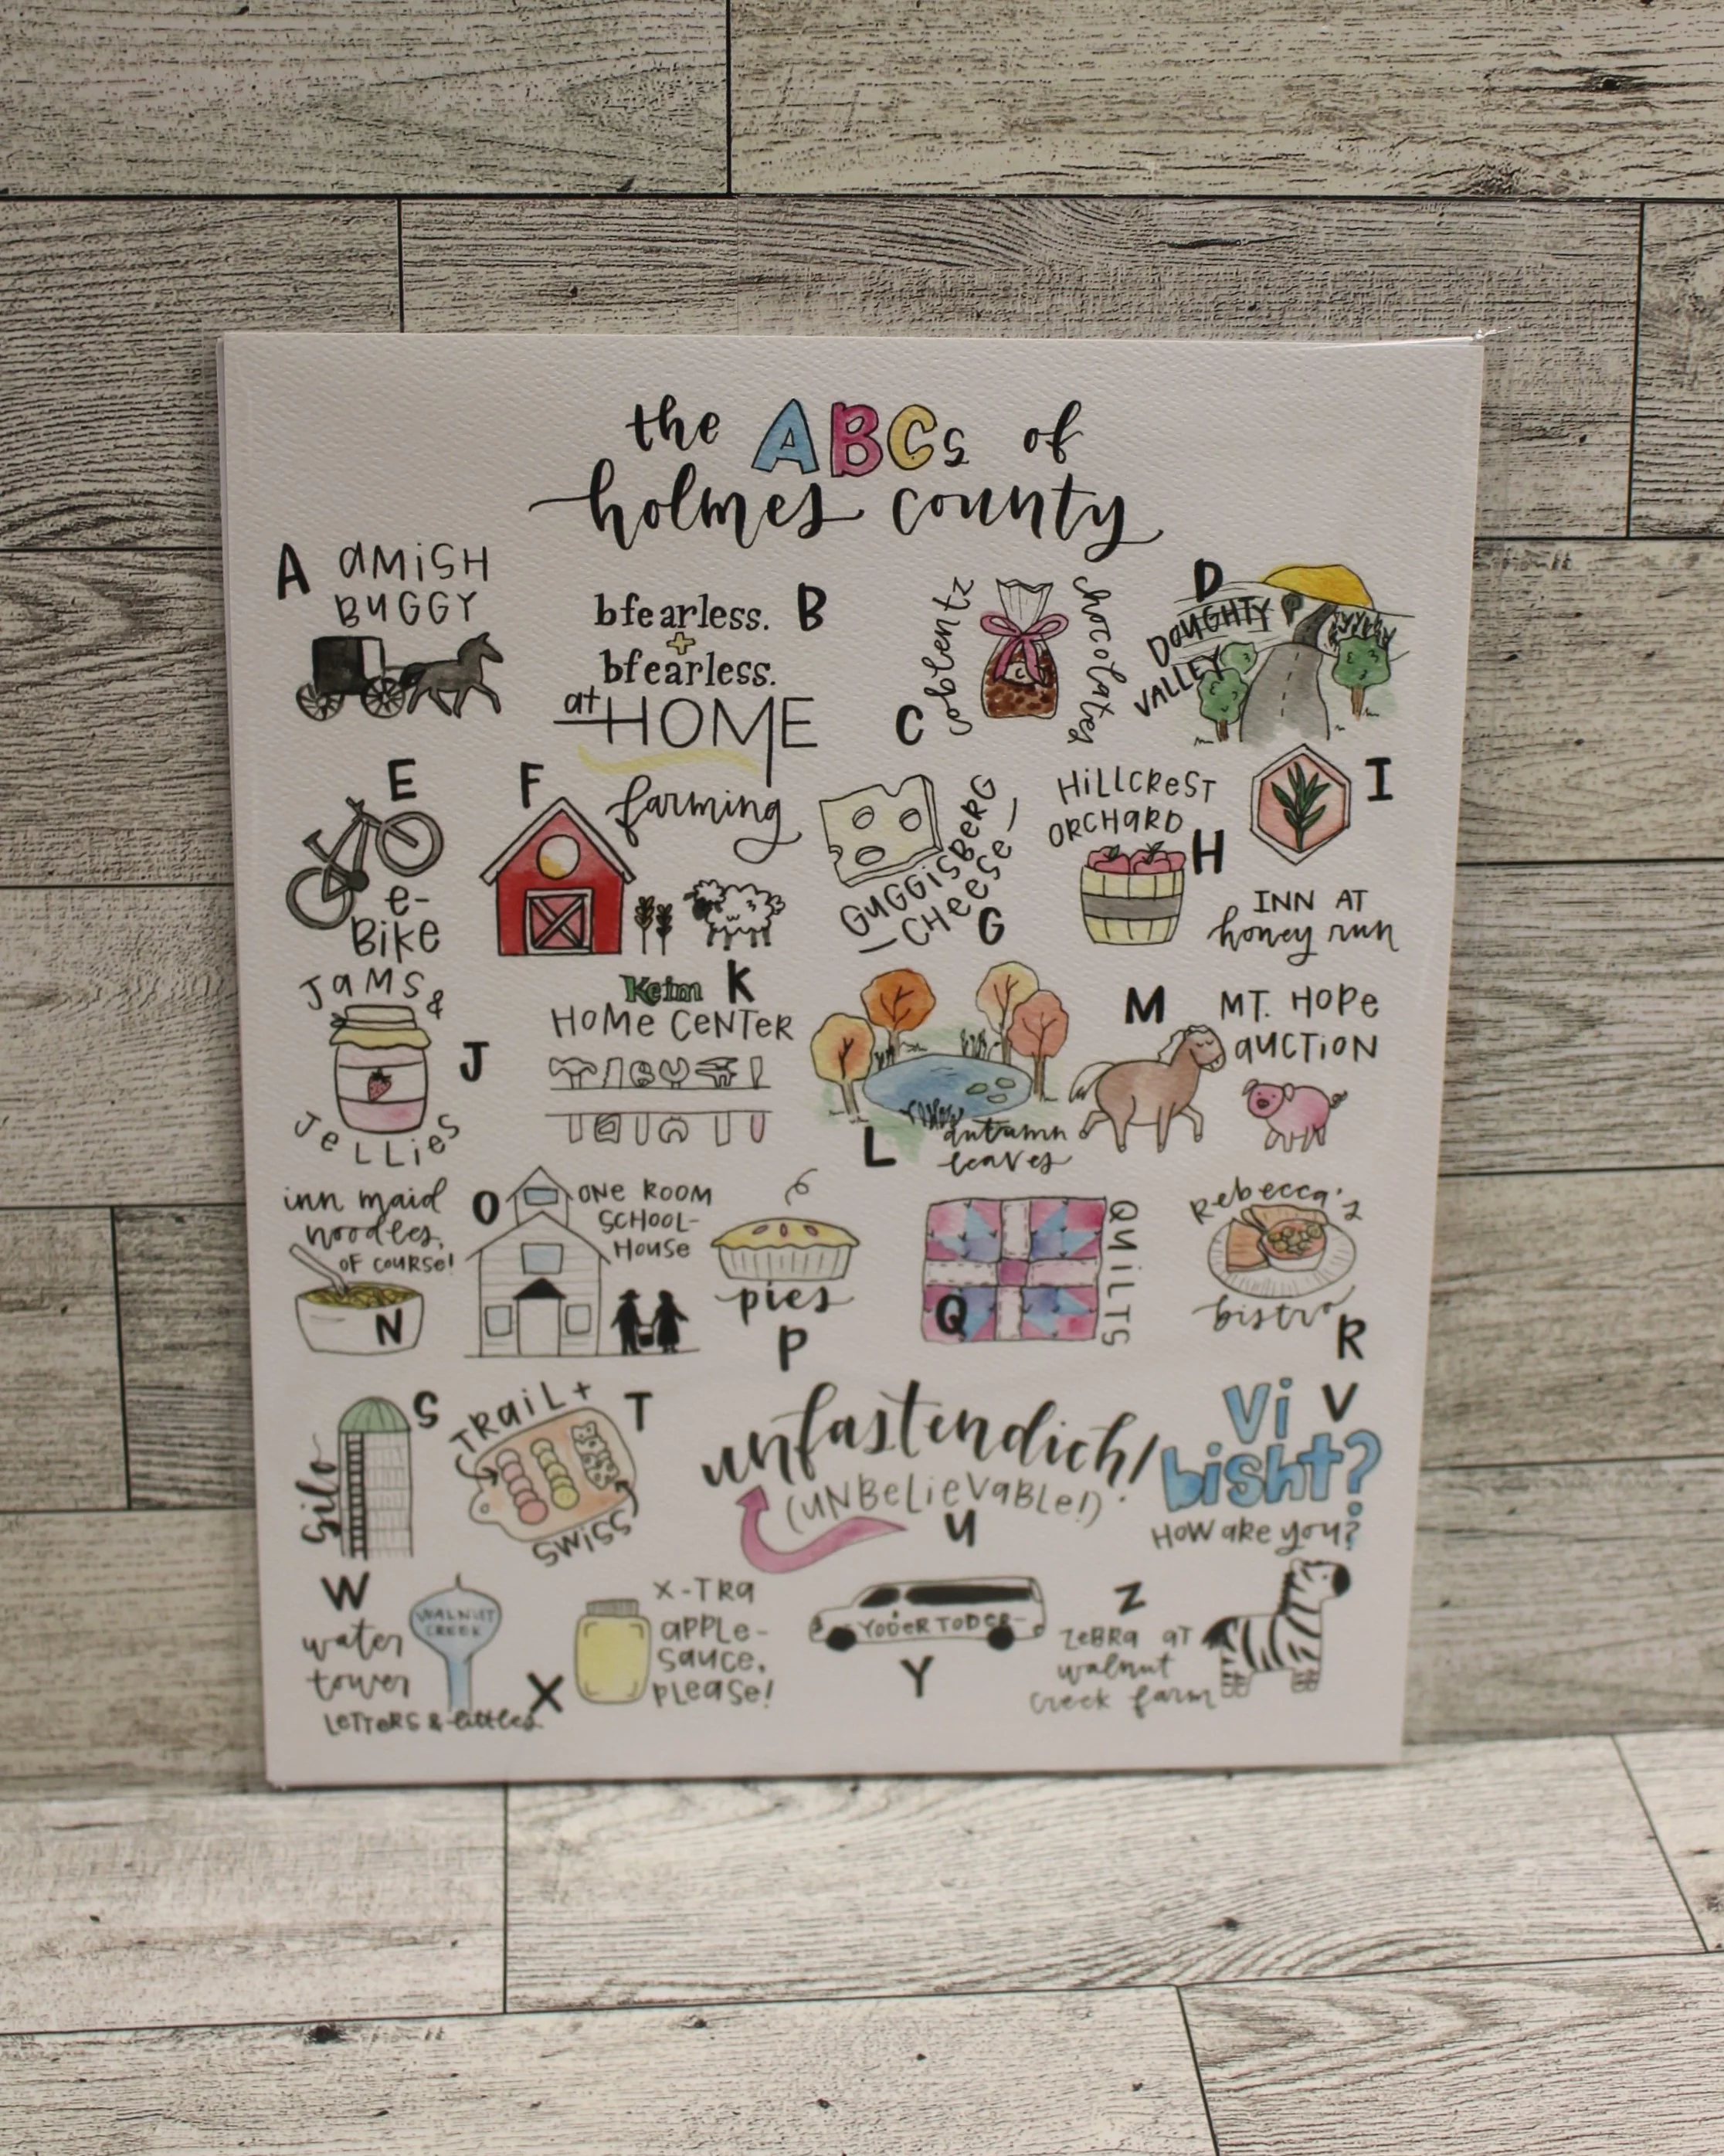 the ABCs of
holmes county
A
AMISH
BUGGY
bfearless.
+
bfearless.
at HOME
B
coblentz
chocolates
C
C
D
DOUGHTY
VALLEY
E
e-
Bike
F
farming
GUGGISBERG
CHeese
G
HiLLCREST
ORCHARD
H
I
INN AT
honey run
JaMS &
JeLLieS
J
Keim
HOMe CeNTeR
K
L
autumn
leaves
M
MT. HOPe
aUCTiON
inn maid
noodles,
OF COURSe!
N
O
ONe ROOM
SCHOOL-
House
pies
P
QUiLTS
Q
Rebecca's
bistro
R
S
silo
TRaiL +
SWiSS
T
unfastendich!
(UNBeLieVaBLe!)
U
Vi
bisht?
HOW aRe you?
V
W
water
tower
WALNUT
CREEK
LeTTeRS & littles
X
X-TRa
aPPLe-
Sauce,
PLease!
YODeR TODeR
Y
Z
ZeBRa aT
walnut
creek farm